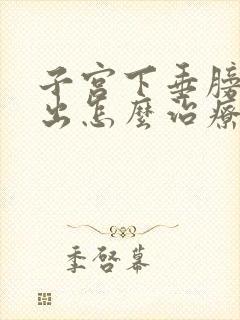 子宫下垂膀
出怎麼治療
季啓幕